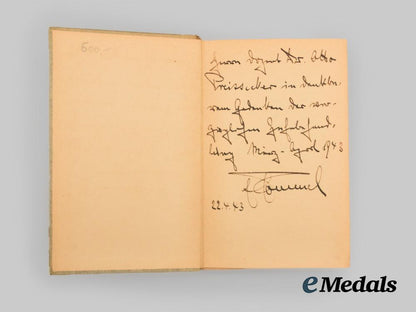 600,-
Herrn Dozent Dr. Otto
Preissecker in dankba-
rem Gedenken der vor-
züglichen
März-April 1943
Rommel
22.4.43
eMedals